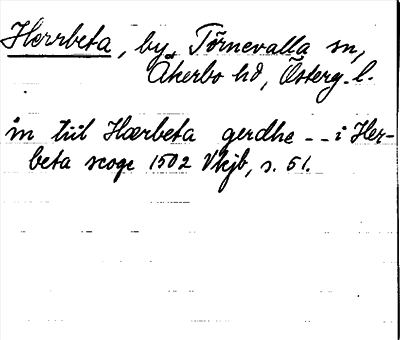 Herrbeta, by, Törnevalla sn,
Åkerbo hd, Österg. l.
in till Hærbeta gerdhe -- i Her-
beta scoge 1502 Vkjb, s. 51.